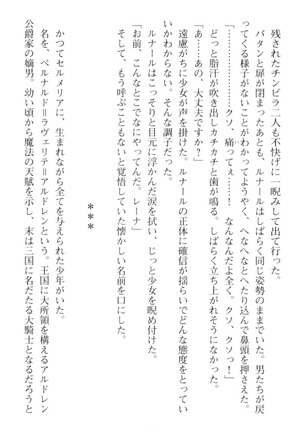 残されたチンピラ二人も不快げに一睨みして出て行った。
バタンと扉が閉まったあとも、ルナールはしばらく同じ姿勢のままでいた。男たちが戻
ってくる様子がないことがわかってようやく、へなへなとへたり込んで鼻頭を押さえた。
「…………クソ、痛ってぇ……！　なんなんだよ全く。クソ、クソっ！」
どっと脂汗が吹き出しカチカチと歯が鳴る。しばらく立ち上がれそうになかった。
「あ……あの、大丈夫ですか？」
遠慮がちに少女が声を掛けた。ルナールの正体に確信が揺らいでどんな態度をとってい
いかわからない。そんな調子だった。
ルナールはこっそりと目元に浮かんだ涙を拭い、じっと少女を睨め付けた。
「お前、こんなとこでなにやってんだ。レーナ」
そして、もう呼ぶこともないと覚悟していた懐かしい名前を口にした。
＊＊＊
かつてセルメリアに、生まれながら全てを与えられた少年がいた。
名を、ベルナルド＝ラヴェリテ＝アルドレンという。王国に大所領を構えるアルドレン
公爵家の嫡男。幼い頃から魔法の天賦を示し、末は三国に名だたる大騎士となるだろうと